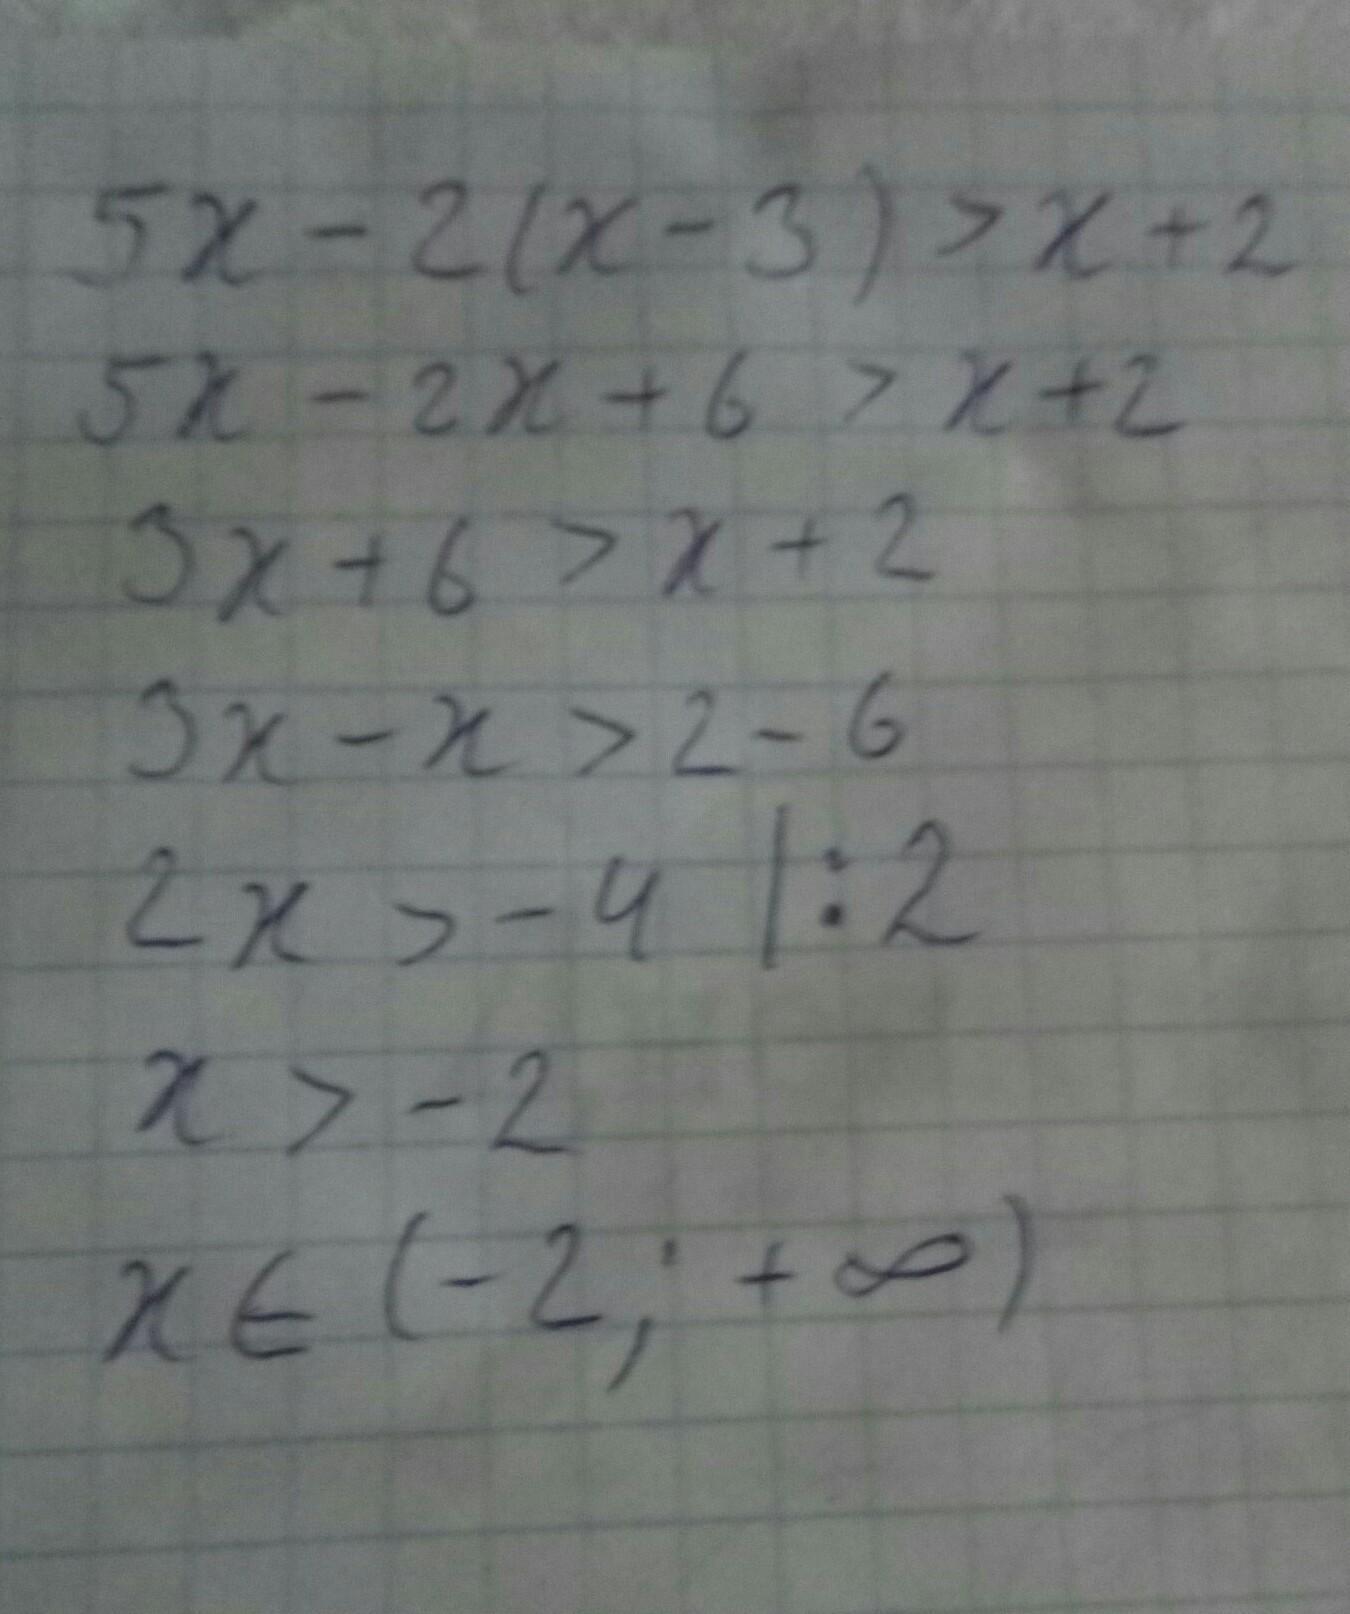 5x - 2(x - 3) > x + 2
5x - 2x + 6 > x + 2
3x + 6 > x + 2
3x - x > 2 - 6
2x > -4 | : 2
x > -2
x ∈ (-2; +∞)